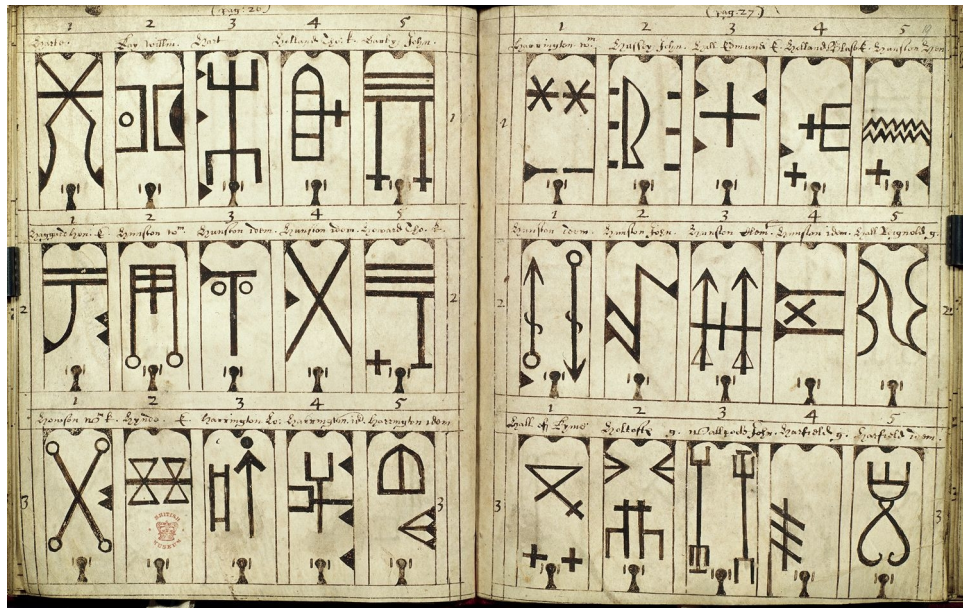 (pag: 26)
1 2 3 4 5
Hart Holland Tho: k. Banky. John.
1
1 2 3 4 5
Hunston wm. Hunston idem. Hunston idem. Howard Tho. k.
2 2
1 2 3 4 5
k. Harrington Harrington. id: Harrington idem
3 3
BRITISH MUSEUM
(pag: 27)
1 2 3 4 5
Harrington. wm. Hussey. John. Hall Edmund Holland Hunston
1
1 2 3 4 5
Hunston idem. Hunston John. Hunston Hunston idem. Hall Reignold g.
2 2
1 2 3 4 5
Hall of Lyme Holtofte g. Wallpode John. Harfield g. Harfield idem.
3 3